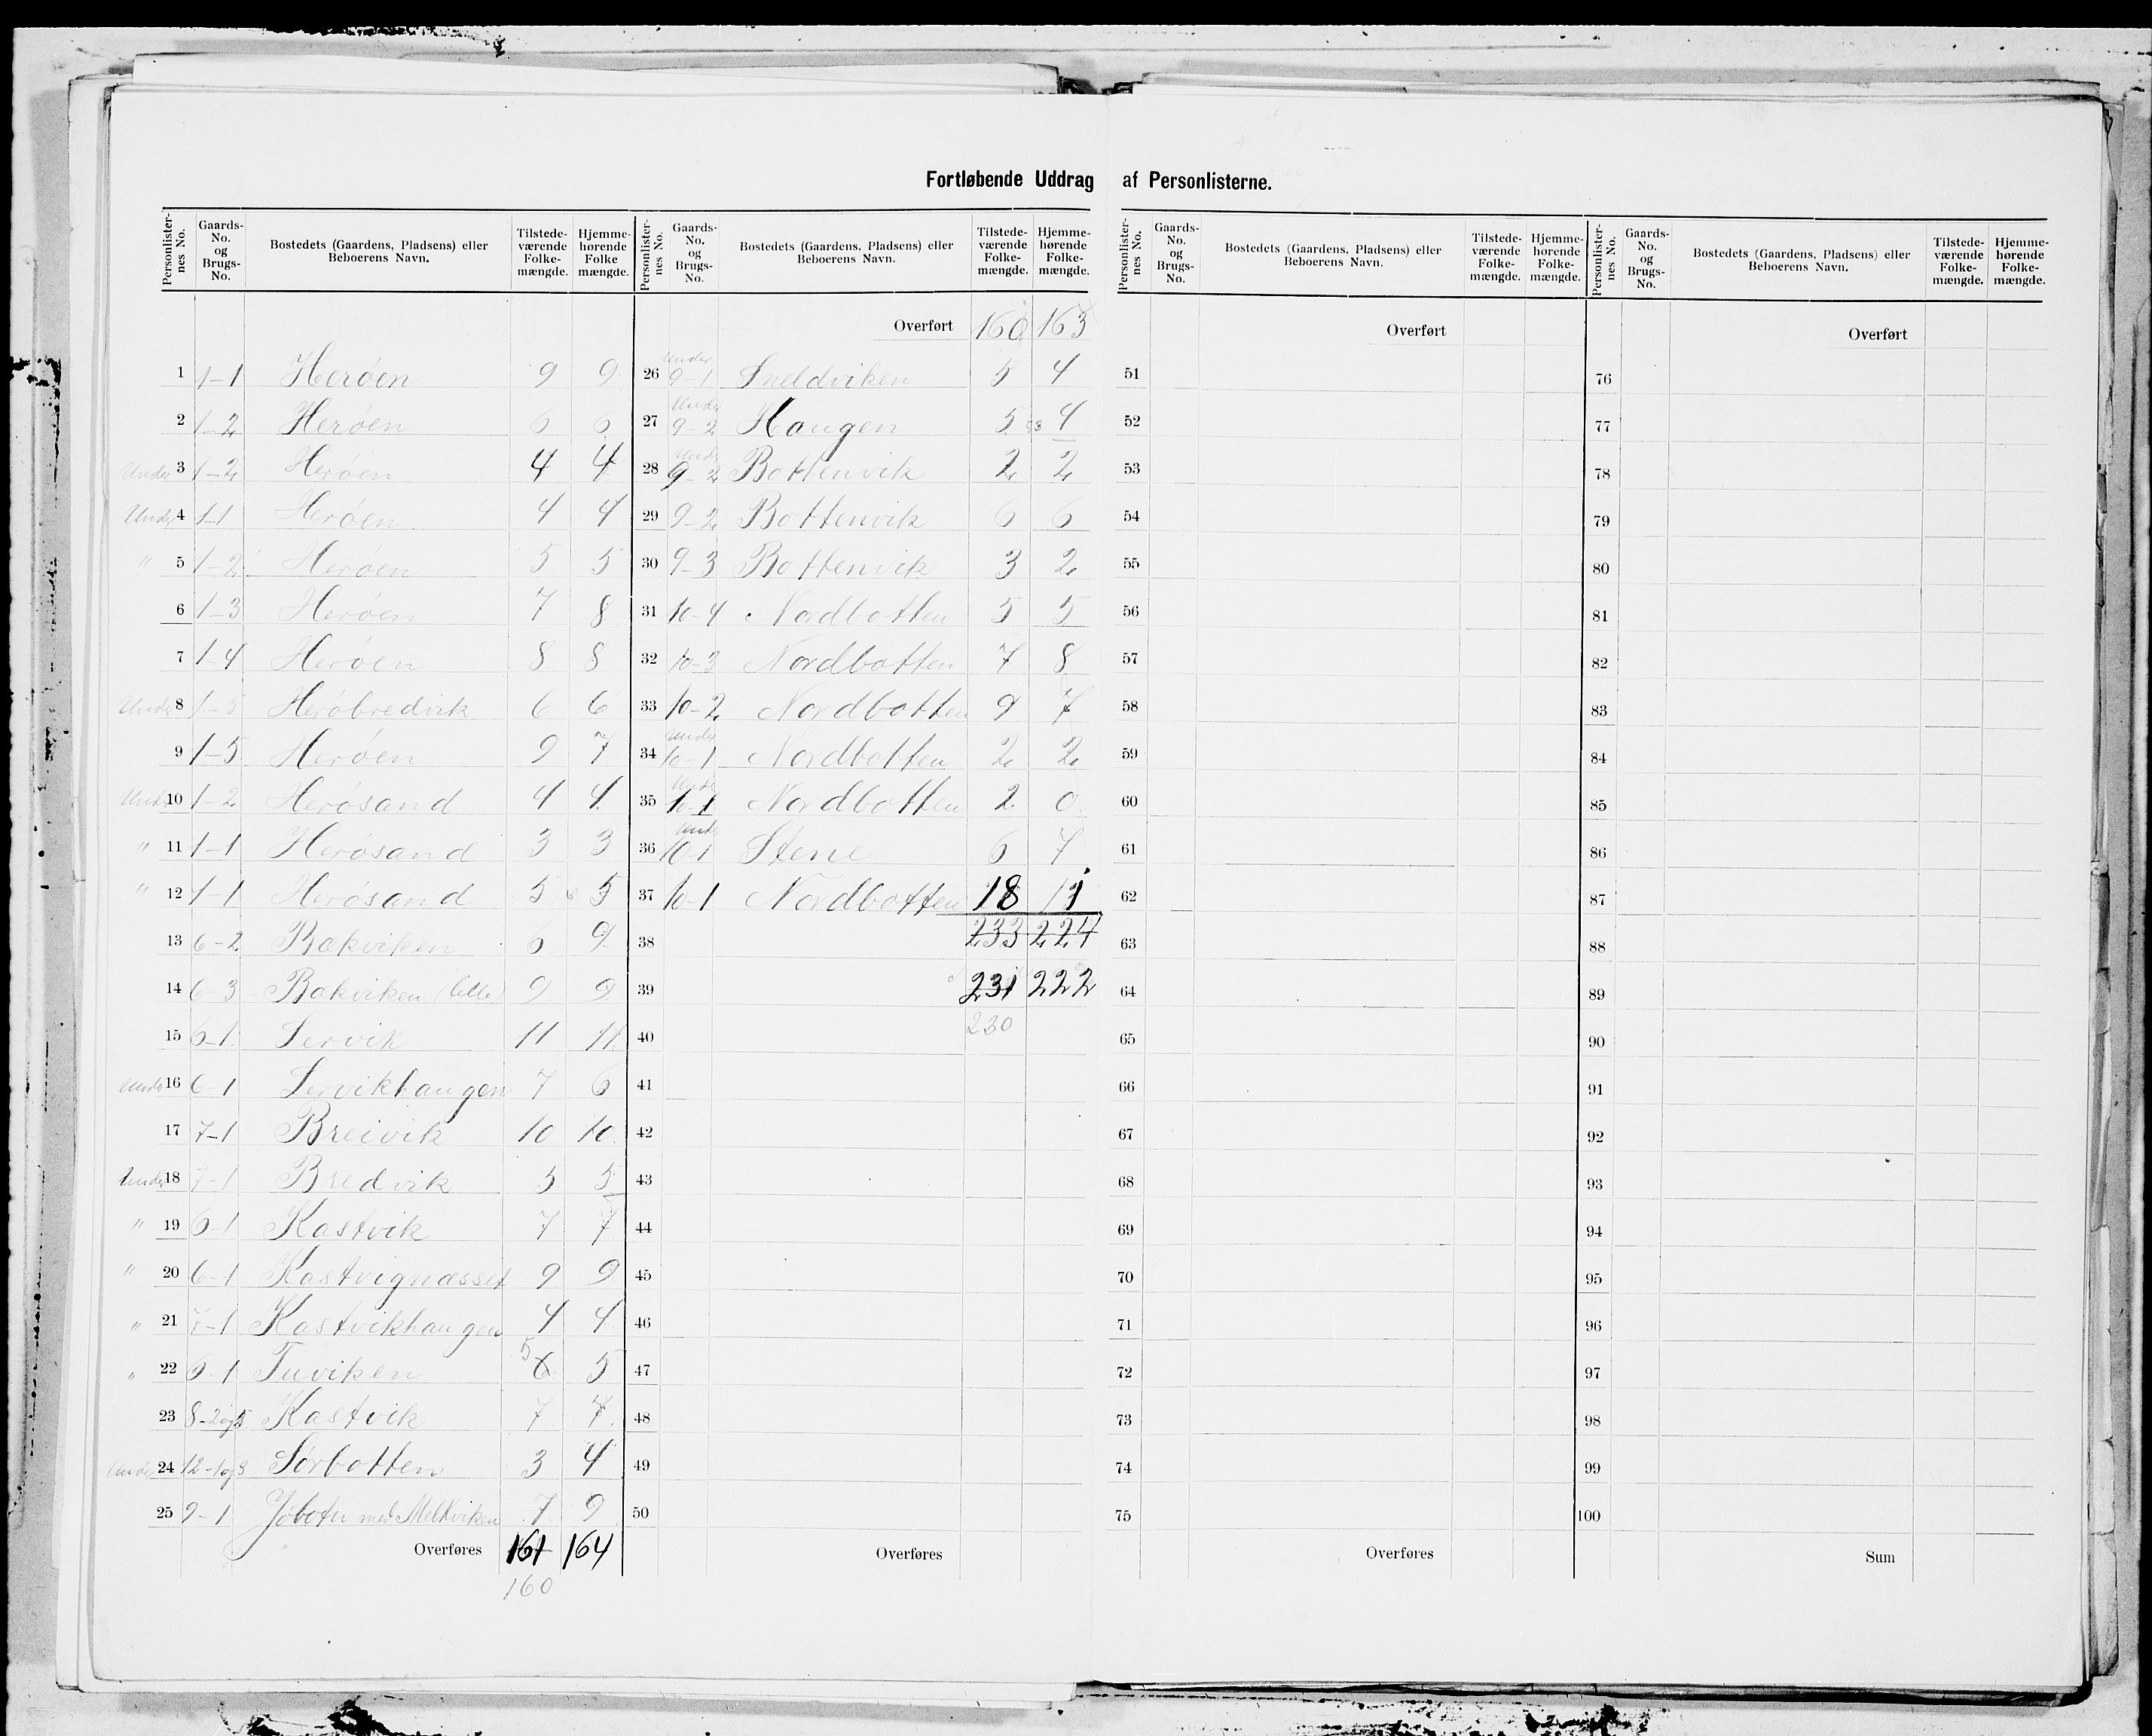 Fortløbende Uddrag af Personlisterne.
Personlister-nes No. | Gaards-No. og Brugs-No. | Bostedets (Gaardens, Pladsens) eller Beboerens Navn. | Tilstede-værende Folke-mængde. | Hjemme-hørende Folke mængde.
1 1-1 Herøen 9 9
2 1-2 Herøen 6 6
Under 3 1-2 Herøen 4 4
Under 4 1-1 Herøen 4 4
" 5 1-2 Herøen 5 5
6 1-3 Herøen 7 8
7 1-4 Herøen 8 8
Under 8 1-5 Herøbredvik 6 6
9 1-5 Herøen 9 7
Under 10 1-2 Herøsand 4 4
" 11 1-1 Herøsand 3 3
" 12 1-1 Herøsand 5 5
13 6-2 Bakviken 6 9
14 6-3 Bakviken (lille) 9 9
15 6-1 Lervik 11 11
Under 16 6-1 Lervikhaugen 7 6
17 7-1 Breivik 10 10
Under 18 7-1 Bredvik 5
" 19 6-1 Kastvik 7 7
" 20 6-1 Kastvignæsset 9 9
" 21 7-1 Kastvikhaugen 4 4
" 22 6-1 Tuviken 5 6 5
23 8-2 og 5 Kastvik 7 7
Under 24 12-1 og 3 Sørbotten 3 4
25 9-1 Jøbotn med Melkviken 7 9
Overføres 161 164
160
Personlister-nes No. | Gaards-No. og Brugs-No. | Bostedets (Gaardens, Pladsens) eller Beboerens Navn. | Tilstede-værende Folke-mængde. | Hjemme-hørende Folke-mængde.
Overført 160 163
26 Under 9-1 Sneldviken 5 4
27 Under 9-2 Haugen 5 4
28 Under 9-2 Bottenvik 2 2
29 9-2 Bottenvik 6 6
30 9-3 Bottenvik 3 2
31 10-4 Nordbotten 5 5
32 10-3 Nordbotten 7 8
33 10-2 Nordbotten 9 7
34 Under 10-1 Nordbotten 2 2
35 Under 10-1 Nordbotten 2 0
36 Under 10-1 Stene 6 7
37 10-1 Nordbotten 18 11
38 233 224
39 231 222
40 230
41
42
43
44
45
46
47
48
49
50
Overføres
Personlister-nes No. | Gaards-No. og Brugs-No. | Bostedets (Gaardens, Pladsens) eller Beboerens Navn. | Tilstede-værende Folke-mængde. | Hjemme-hørende Folke-mængde.
Overført
51
52
53
54
55
56
57
58
59
60
61
62
63
64
65
66
67
68
69
70
71
72
73
74
75
Overføres
Personlister-nes No. | Gaards-No. og Brugs-No. | Bostedets (Gaardens, Pladsens) eller Beboerens Navn. | Tilstede-værende Folke-mængde. | Hjemme-hørende Folke-mængde.
Overført
76
77
78
79
80
81
82
83
84
85
86
87
88
89
90
91
92
93
94
95
96
97
98
99
100
Sum